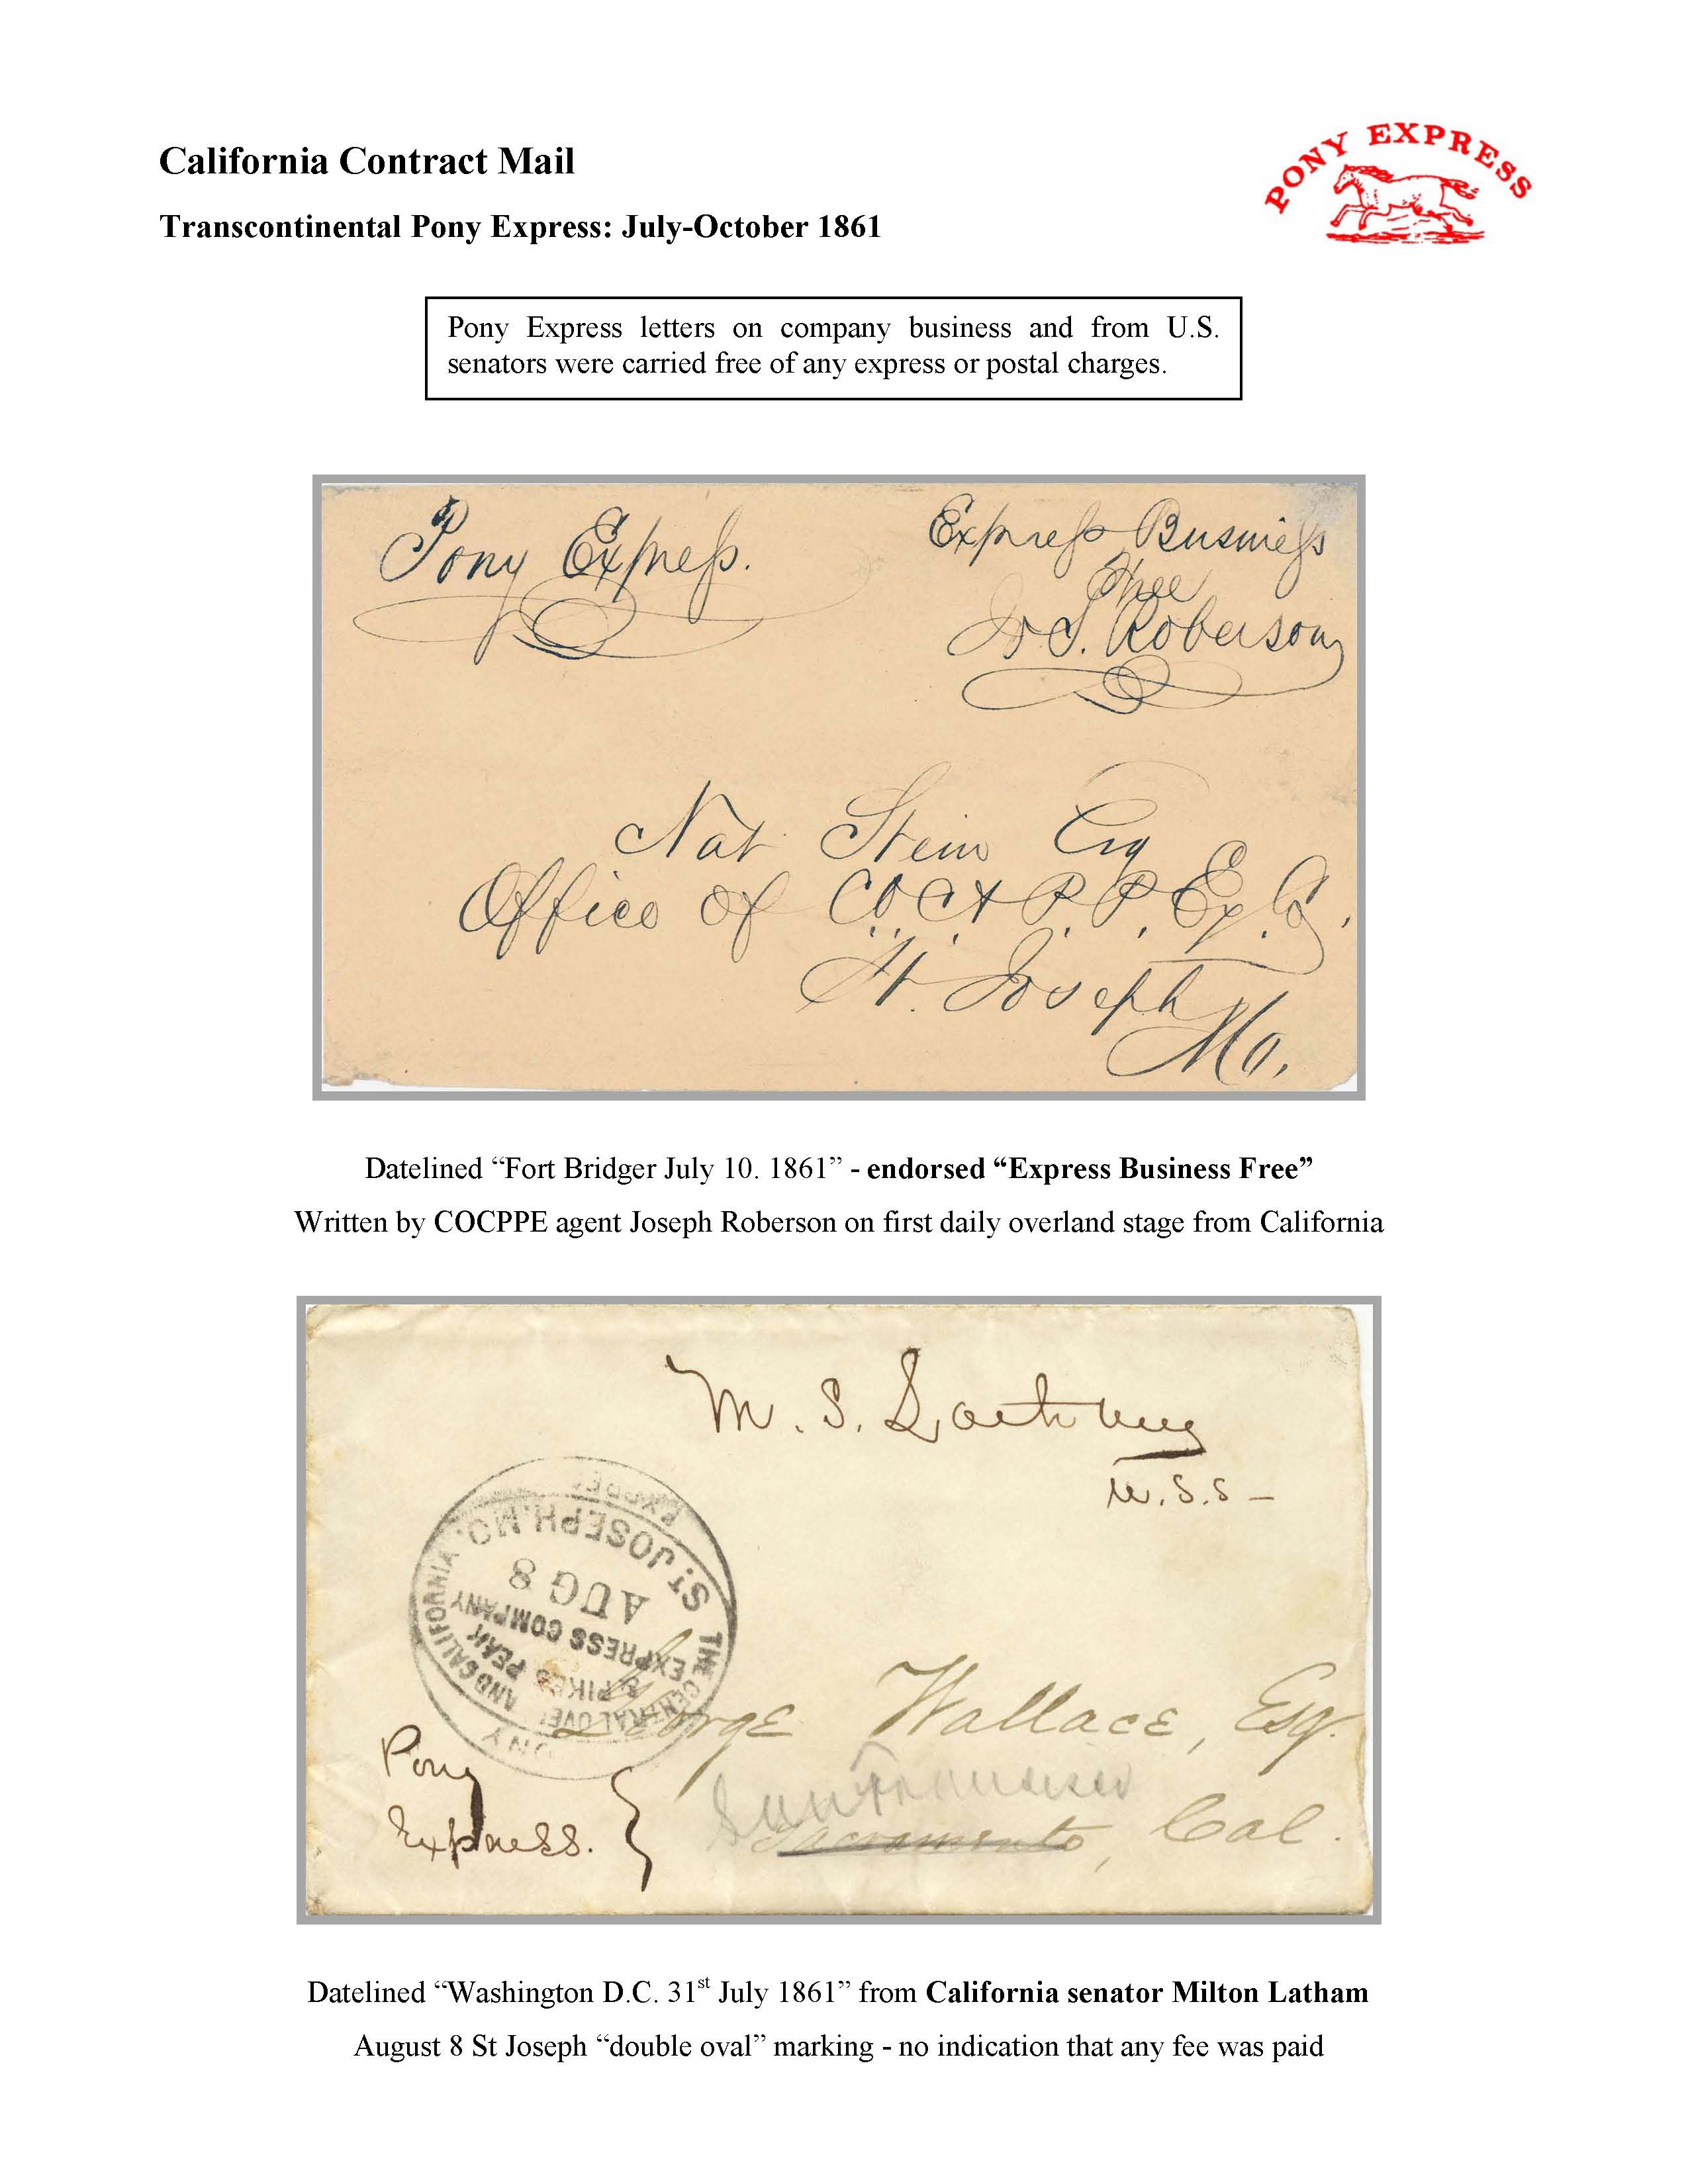 California Contract Mail
PONY EXPRESS
Transcontinental Pony Express: July-October 1861
Pony Express letters on company business and from U.S.
senators were carried free of any express or postal charges.
Pony Express.
Express Business
Free
Jos. Roberson
Nat Stein Esq
Office of C.O.C. & P.P. Ex. Co.
St. Joseph
Mo.
Datelined “Fort Bridger July 10. 1861” - endorsed “Express Business Free”
Written by COCPPE agent Joseph Roberson on first daily overland stage from California
M. S. Latham
U.S.S –
PONY EXPRES
THE CENTRAL OVE AND CALIFORNIA
& PIKES PEAK
EXPRESS COMPANY
AUG 8
ST. JOSEPH, MO.
George Wallace, Esq.
Pony
Express.
San Francisco
Sacramento, Cal.
Datelined “Washington D.C. 31st July 1861” from California senator Milton Latham
August 8 St Joseph “double oval” marking - no indication that any fee was paid